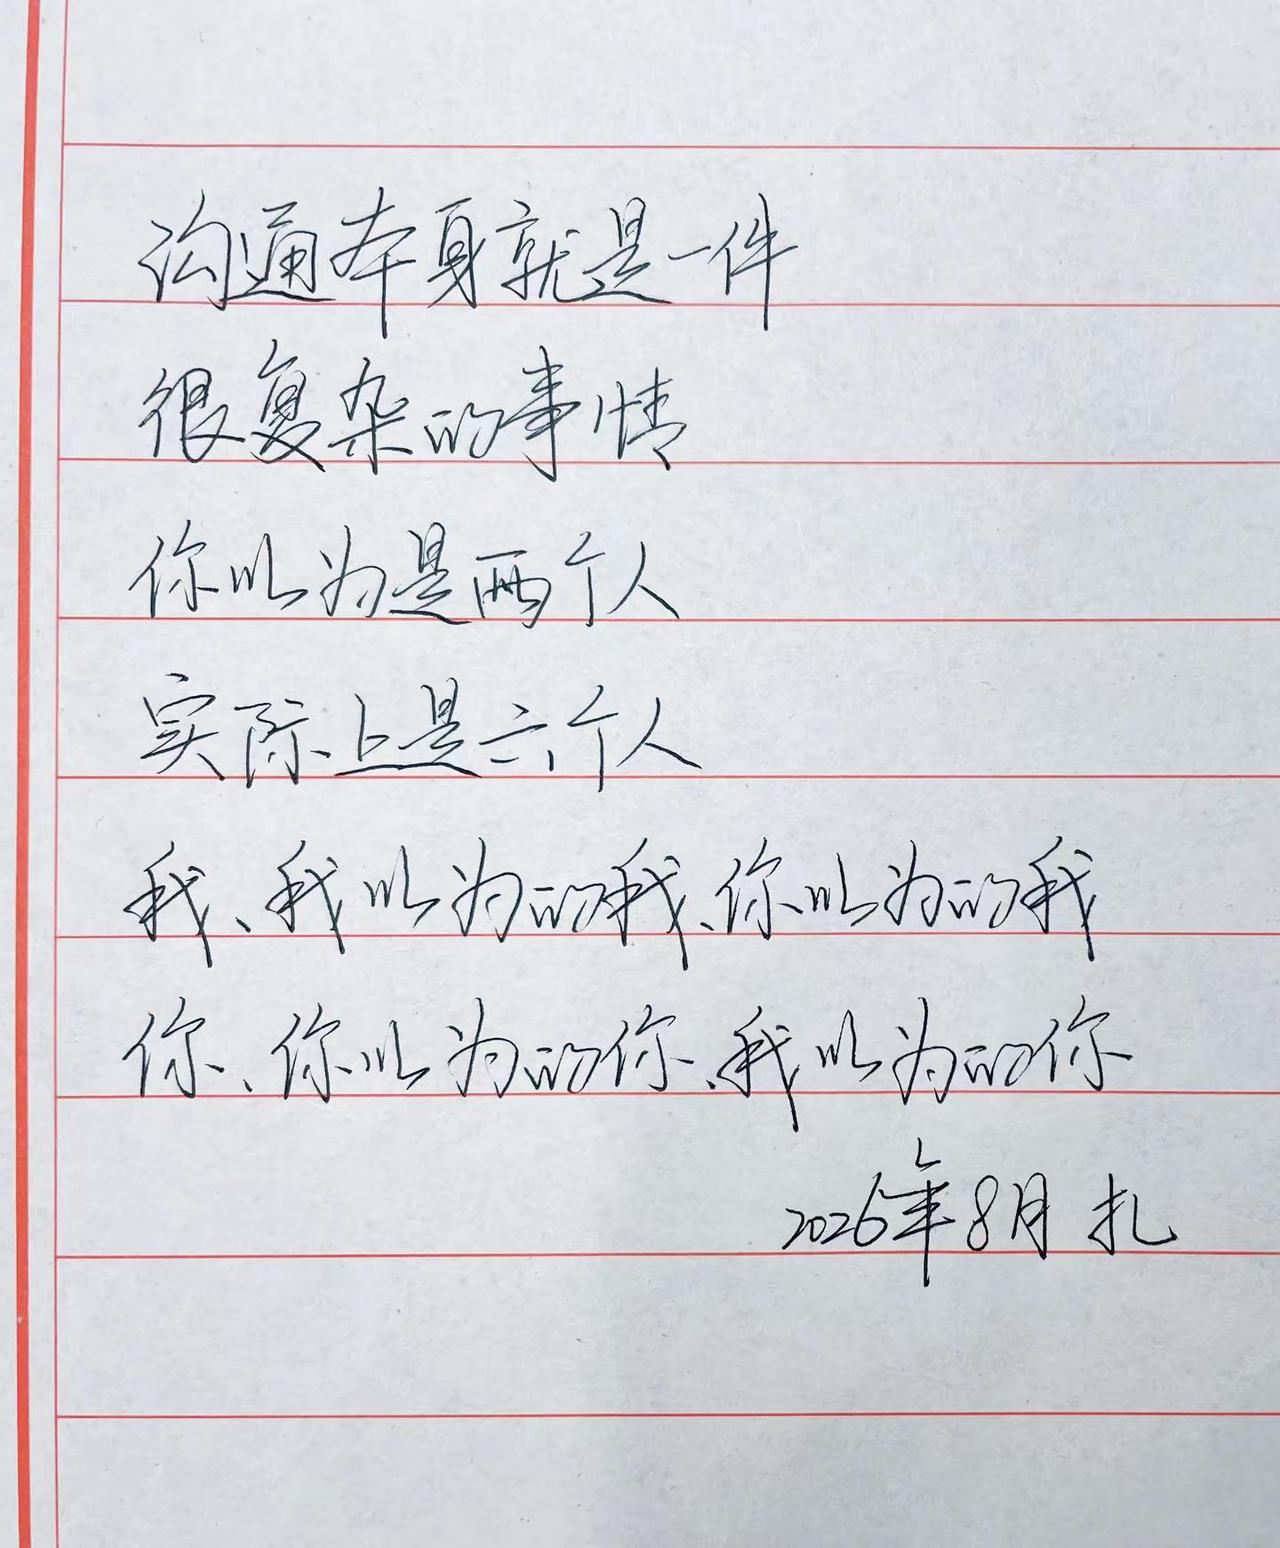 沟通本身就是一件
很复杂的事情
你以为是两个人
实际上是六个人
我、我以为的我、你以为的我
你、你以为的你、我以为的你
2026年8月 扎